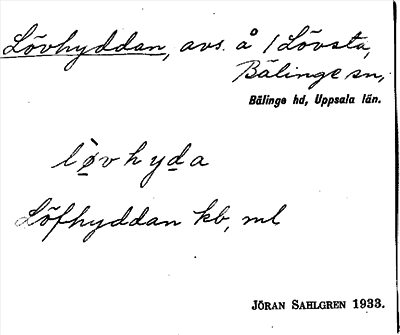 Lövhyddan, avs. å / Lövsta,
Bälinge sn,
Bälinge hd, Uppsala län.
lø̀vhyda
Löfhyddan kb, ml
JÖRAN SAHLGREN 1933.